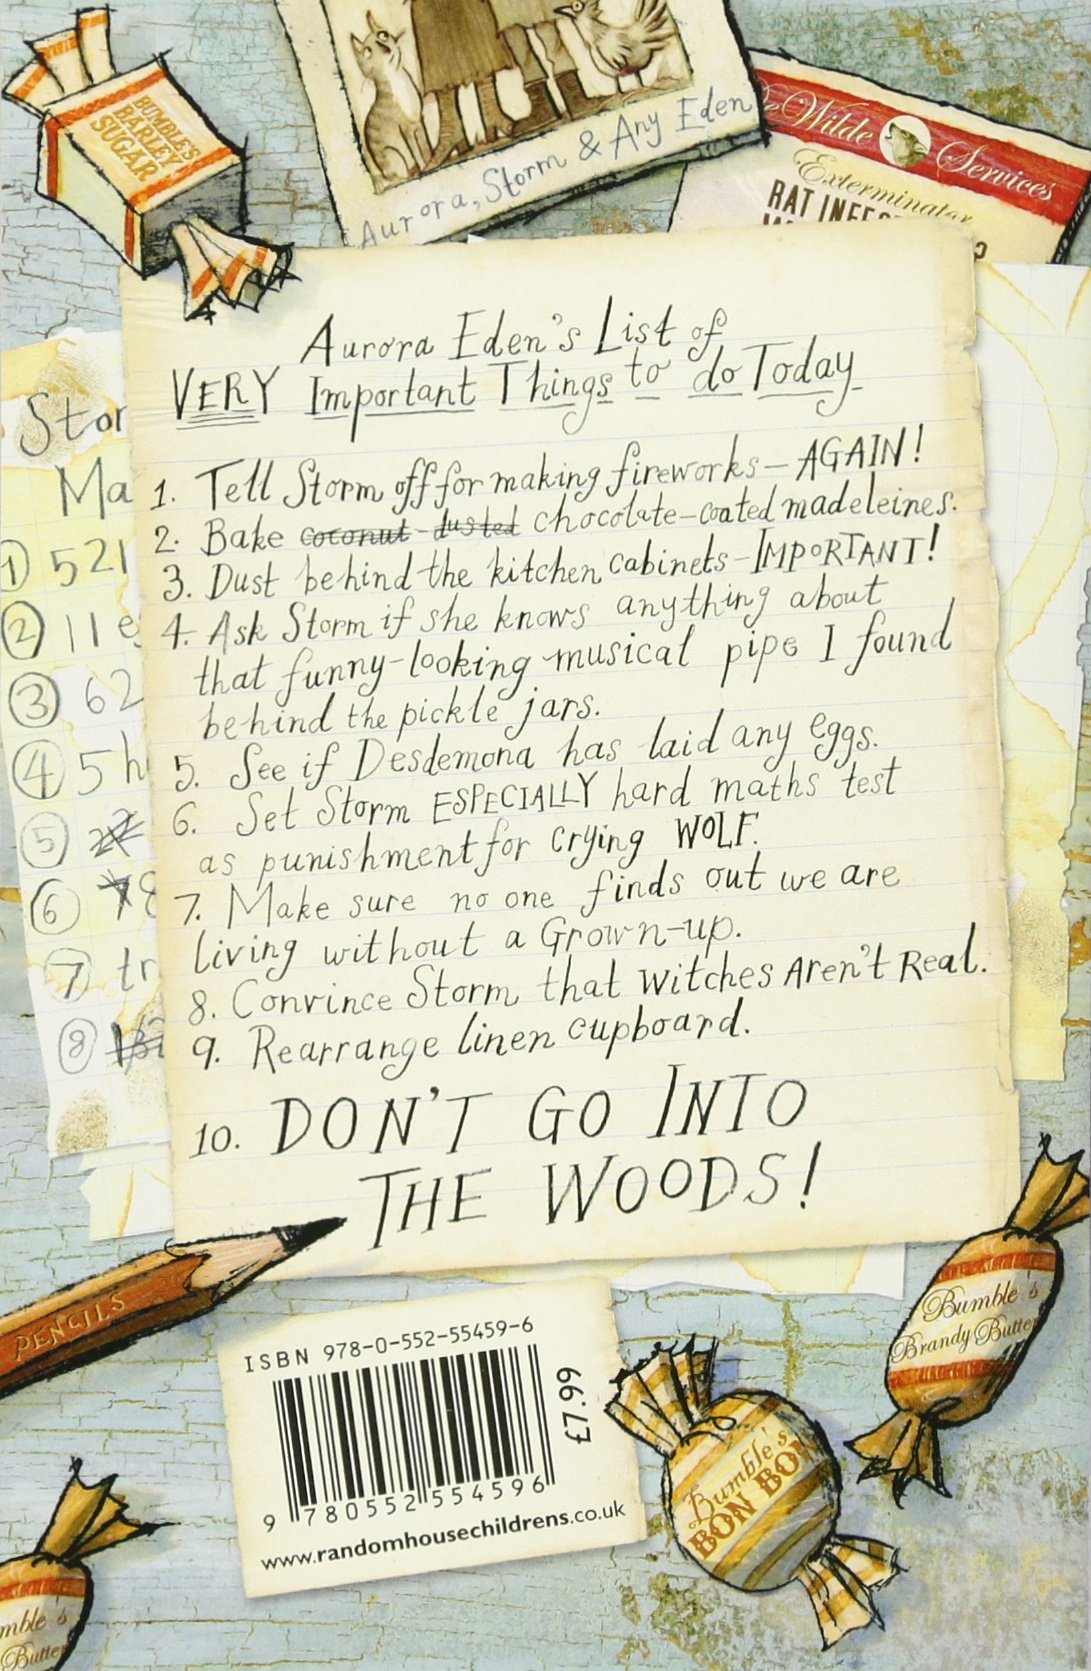 BUMBLE'S
BARLEY
SUGAR
Aurora, Storm & Any Eden
De Wilde Services
Exterminator
RAT
Aurora Eden's List of
VERY Important Things to do Today
1. Tell Storm off for making fireworks – AGAIN!
2. Bake coconut-dusted chocolate-coated madeleines.
3. Dust behind the kitchen cabinets – IMPORTANT!
4. Ask Storm if she knows anything about
that funny-looking musical pipe I found
behind the pickle jars.
5. See if Desdemona has laid any eggs.
6. Set Storm ESPECIALLY hard maths test
as punishment for crying WOLF.
7. Make sure no one finds out we are
living without a Grown-up.
8. Convince Storm that Witches Aren't Real.
9. Rearrange linen cupboard.
10. DON'T GO INTO
THE WOODS!
Stor
Ma
1 521
2 11 e
3 62
4 5 h
5
6 78
7 tr
8
PENCILS
ISBN 978-0-552-55459-6
£7.99
9 780552 554596
www.randomhousechildrens.co.uk
Bumble's
Brandy Butter
Bumble's
BON BON
mble's
Butter